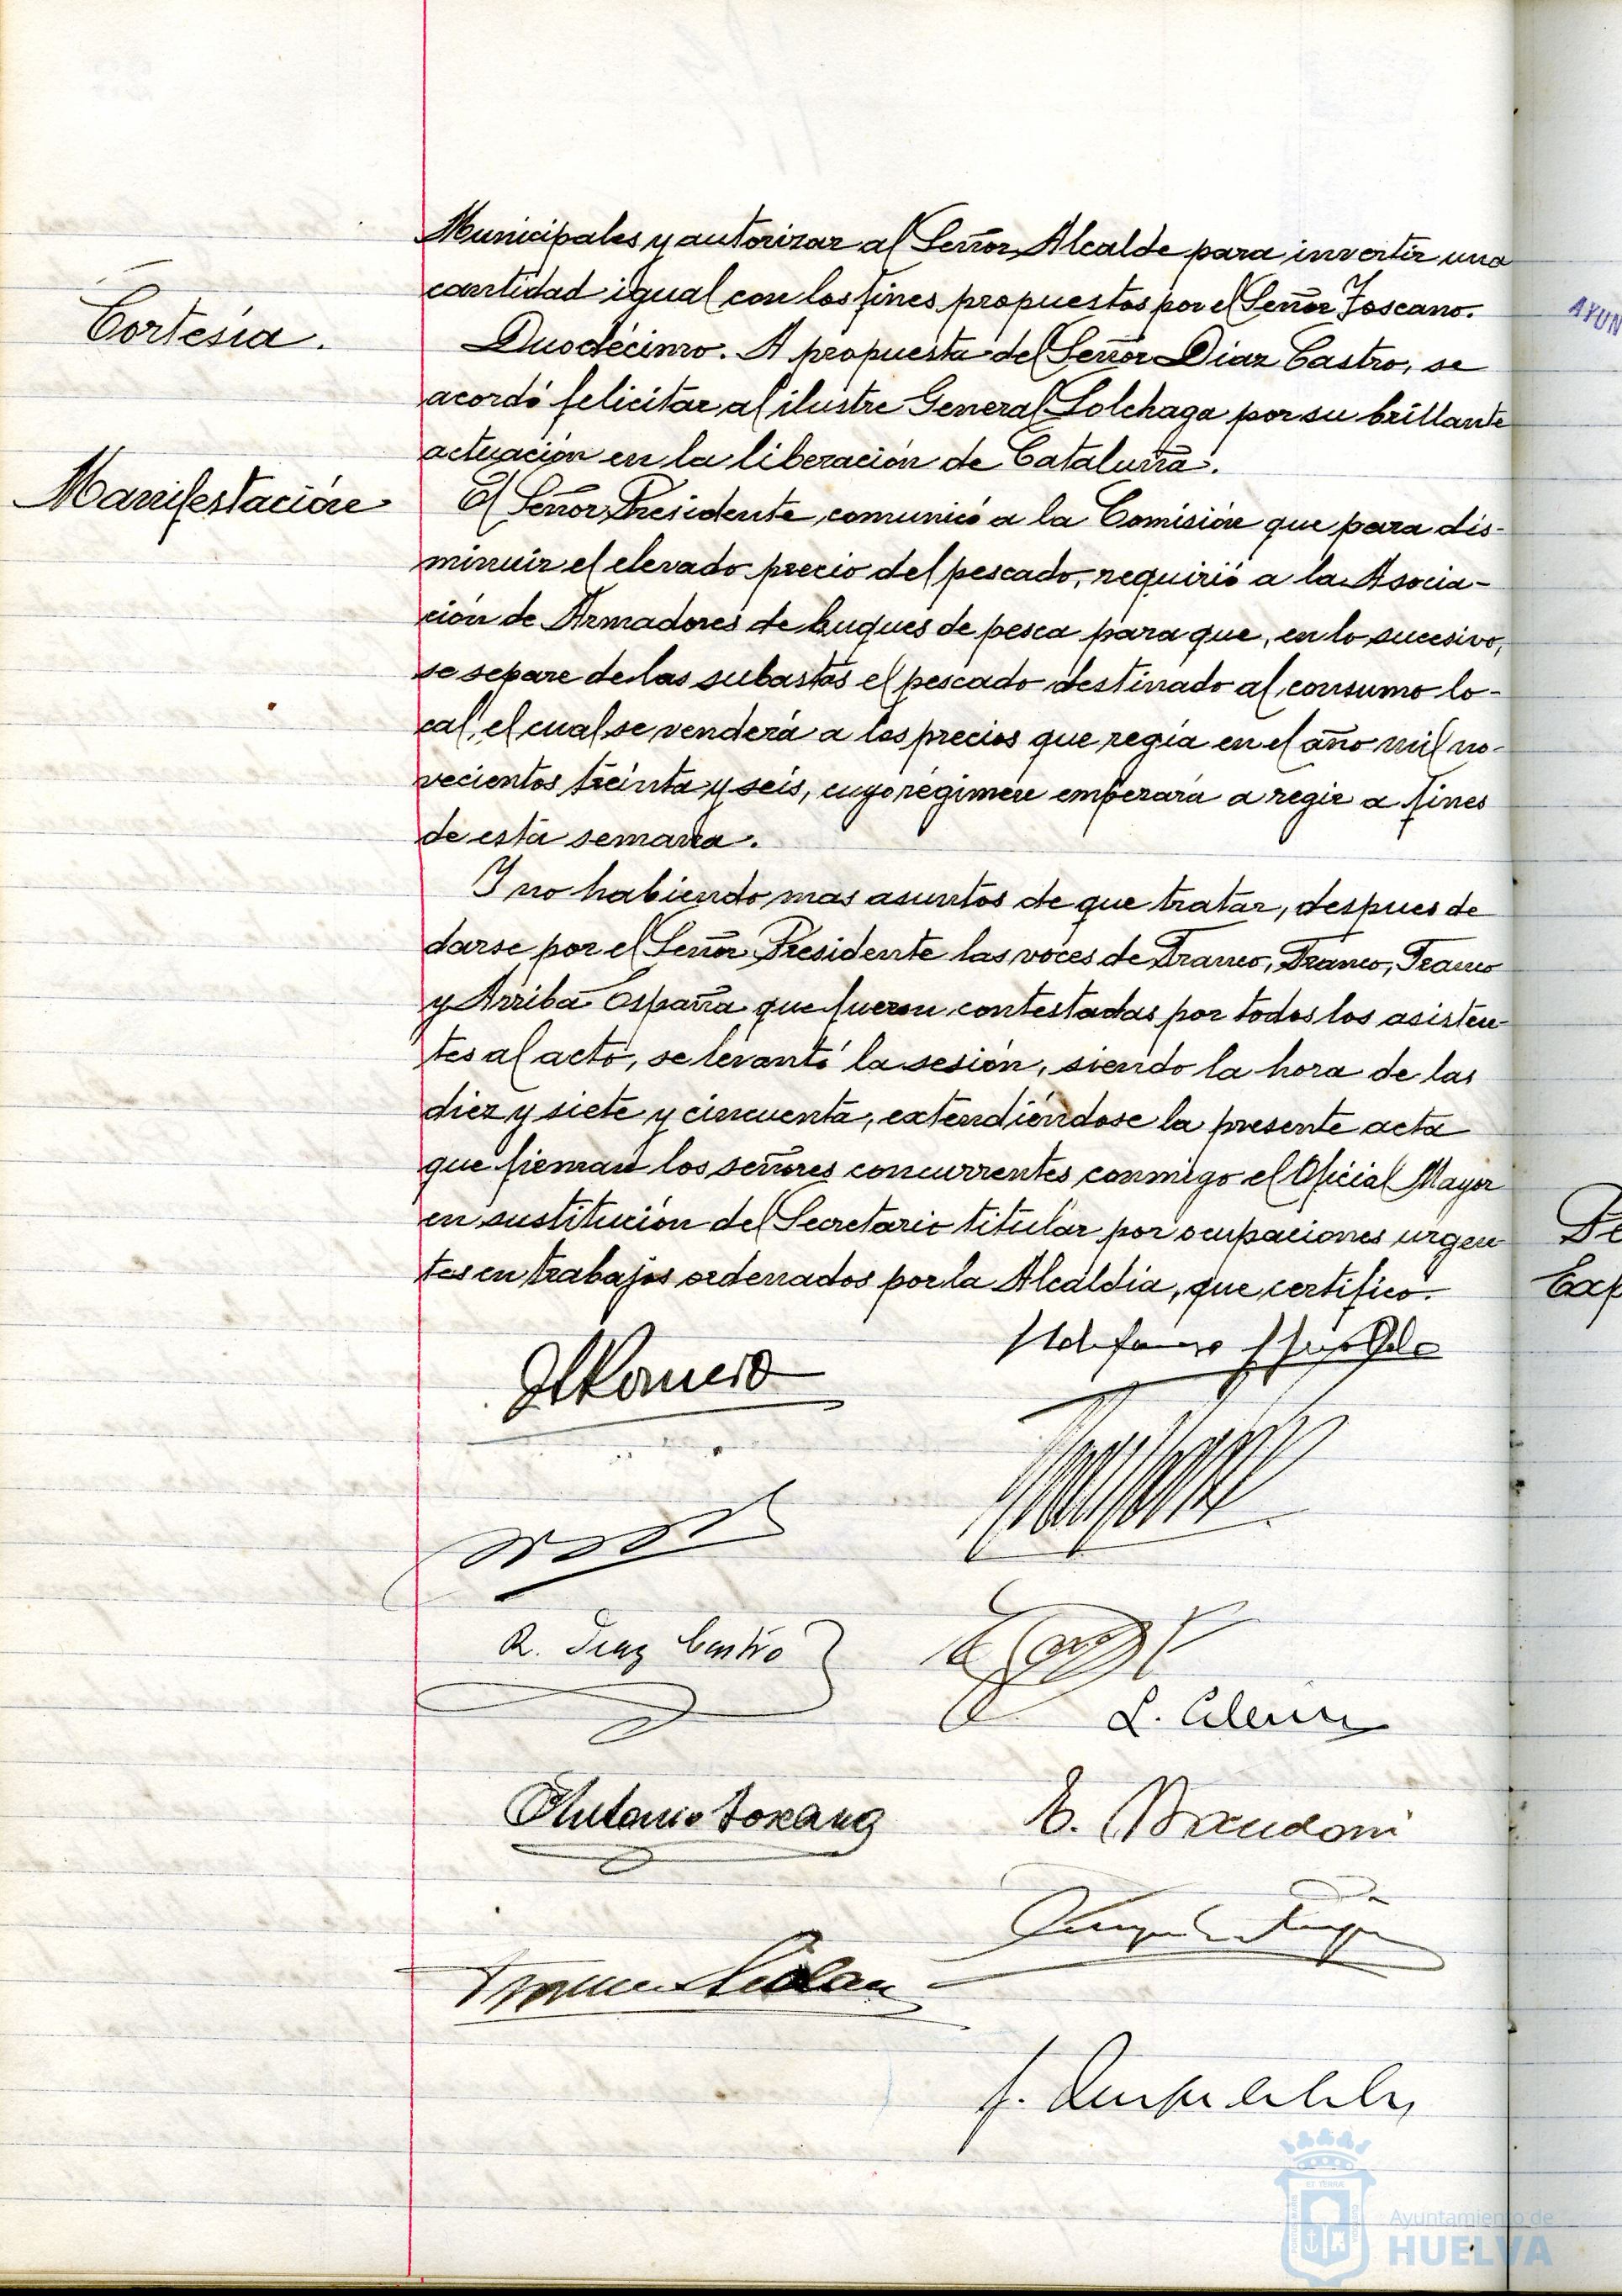 Municipales y autorizar al Señor Alcalde para invertir una
cantidad igual con los fines propuestos por el Señor Toscano.
Cortesía.
Duodécimo. A propuesta del Señor Díaz Castro, se
acordó felicitar al ilustre General Solchaga por su brillante
actuación en la liberación de Cataluña.
Manifestación
El Señor Presidente comunicó a la Comisión que para dis-
minuir el elevado precio del pescado, requirió a la Asocia-
ción de Armadores de buques de pesca para que, en lo sucesivo,
se separe de las subastas el pescado destinado al consumo lo-
cal, el cual se venderá a los precios que regía en el año mil no-
vecientos treinta y seis, cuyo régimen emperará a regir a fines
de esta semana.
Y no habiendo mas asuntos de que tratar, despues de
darse por el Señor Presidente las voces de Franco, Franco, Franco
y Arriba España que fueron contestadas por todos los asisten-
tes al acto, se levantó la sesión, siendo la hora de las
diez y siete y cincuenta, extendiéndose la presente acta
que firman los señores concurrentes conmigo el Oficial Mayor
en sustitución del Secretario titular por ocupaciones urgen
tes en trabajos ordenados por la Alcaldía, que certifico.
Romero
R. Diaz Castro
Antonio Toscano
AYUN
De
Exp
Ayuntamiento de
HUELVA